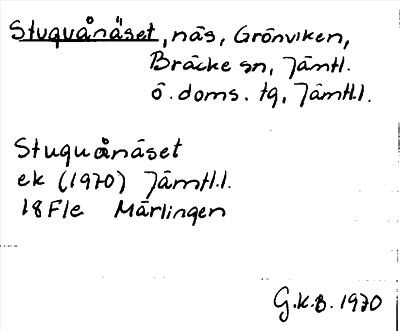 Stuguånäset, näs, Grönviken,
Bräcke sn, Jämtl.
ö. doms. tg, Jämtl.l.
Stuguånäset
ek (1970) Jämtl.l.
18F1e Märlingen
G.K.B. 1970